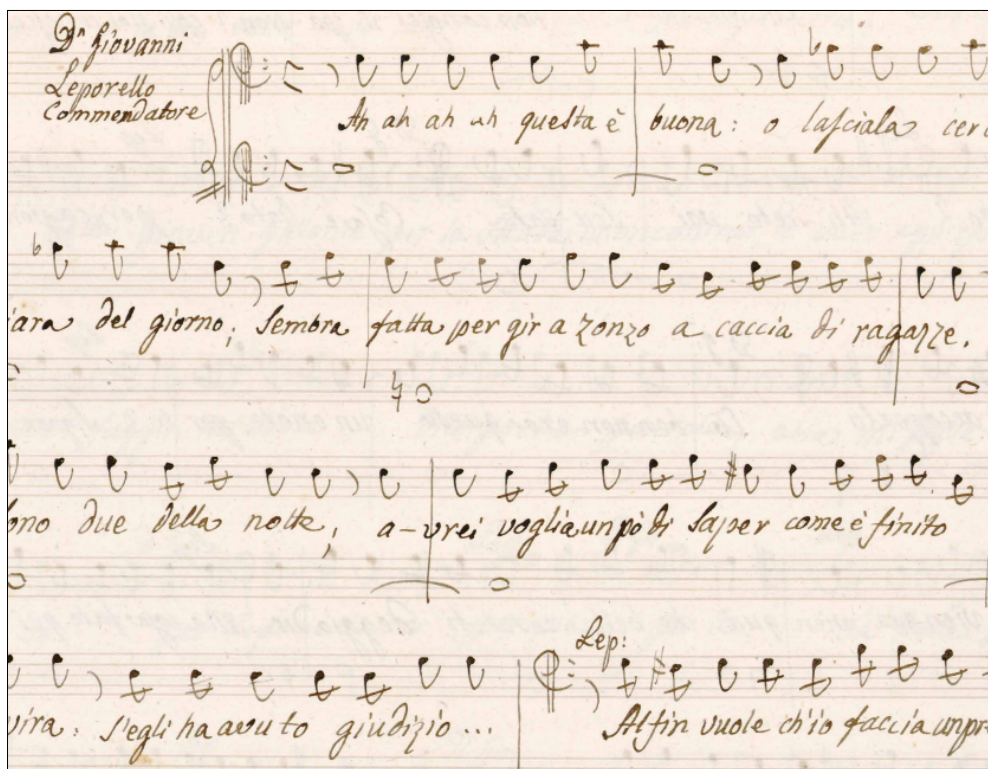 Dn Giovanni
Leporello
Commendatore
Ah ah ah ah questa è buona: o lasciala cerc
iara del giorno; Sembra fatta per gir a zonzo a caccia di ragazze.
ono due della notte, a-vrei voglia un pò di Saper come è finito
vira: S'egli ha avuto giudizio...
Lep:
Alfin vuole ch'io faccia un pre